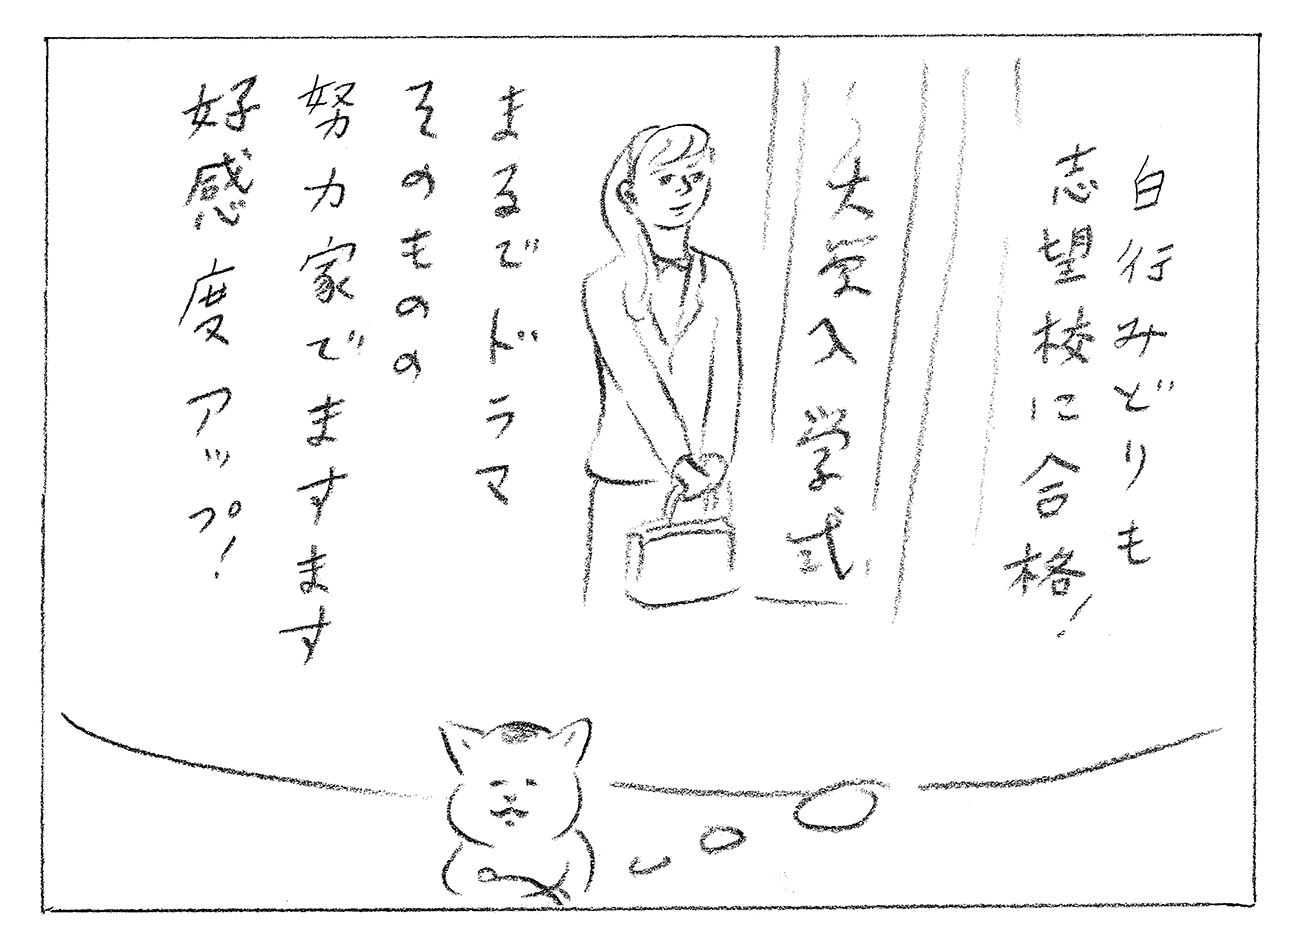 白行みどりも
志望校に合格!
〜大 入学式
まるでドラマ
そのものの
努力家でますます
好感度アップ!